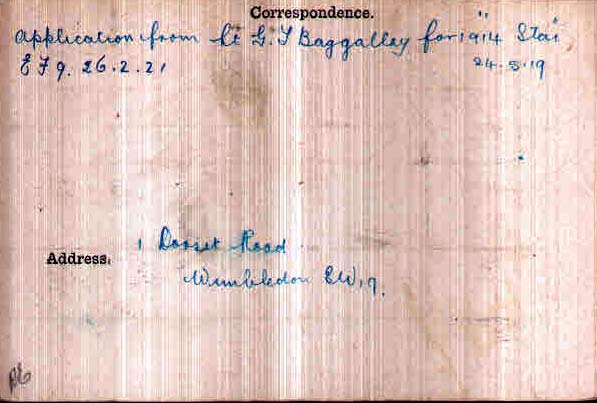 Correspondence.
Application from Lt G.T Baggalley for "1914 Star"
E F 9. 26.2.21
24.5.19
Address.
1 Dorset Road
Wimbledon SW19.